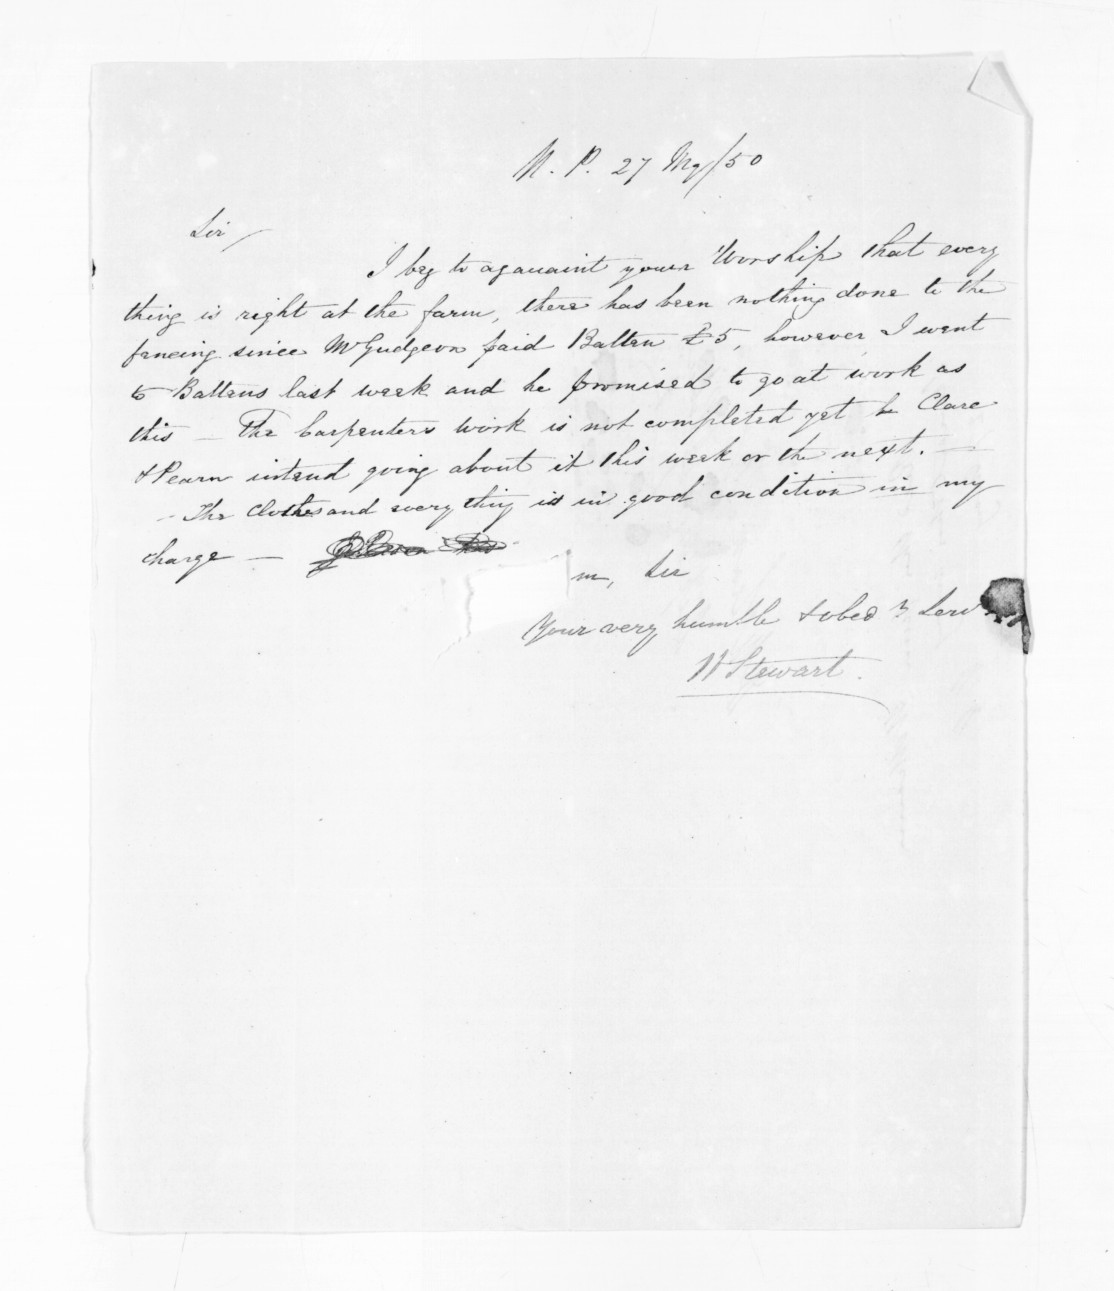 N. P. 27 My/50
Sir
I beg to aquaint your Worship that every
thing is right at the farm, there has been nothing done to the
fencing since Mr Gudgeon paid Batten £5, however I went
to Battens last week and he promised to go at work as
this — The Carpenters work is not completed yet be Clare
& Pearn intend going about it this week or the next. —
— The Clothes and every thing is in good condition in my
charge —
m, Sir
Your very humble & obed t Serv
W Stewart.